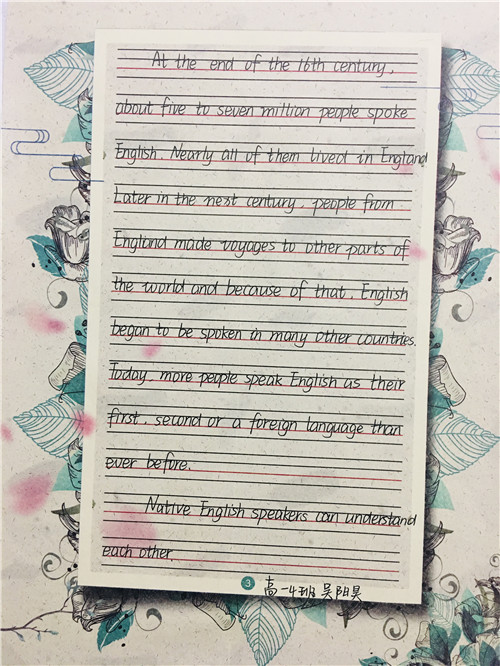 At the end of the 16th century,
about five to seven million people spoke
English. Nearly all of them lived in England
Later in the next century, people from
England made voyages to other parts of
the world and because of that, English
began to be spoken in many other countries.
Today, more people speak English as their
first, second or a foreign language than
ever before.
Native English speakers can understand
each other.
3 高一4班 吴阳昊